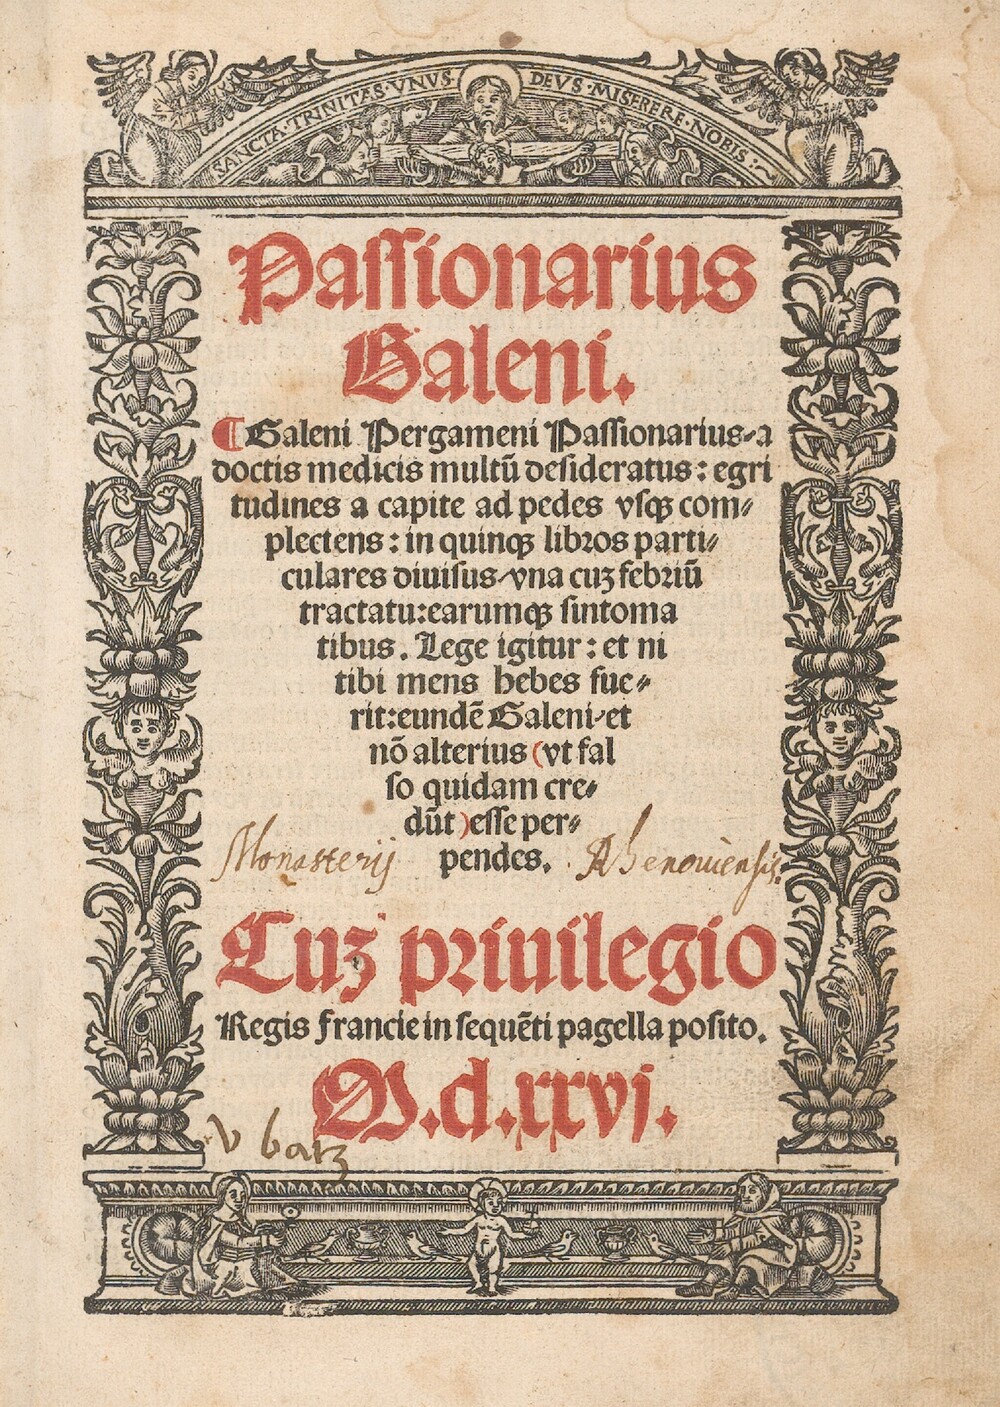 SANCTA·TRINITAS·VNVS·DEVS·MISERERE·NOBIS:~
Passionarius
Galeni.
¶Galeni Pergameni Passionarius/a
doctis medicis multū desideratus: egri
tudines a capite ad pedes vsqꝫ com⸗
plectens: in quinqꝫ libros parti⸗
culares diuisus/vna cuꝫ febriū
tractatu:earumqꝫ sintoma
tibus. Lege igitur: et ni
tibi mens hebes fue⸗
rit:eundē Galeni/et
nō alterius (vt fal
so quidam cre⸗
dūt)esse per⸗
pendes.
Monasterij Rhenouiensis.
Cuꝫ priuilegio
Regis francie in sequēti pagella posito.
M.d.xxvj.
v batz